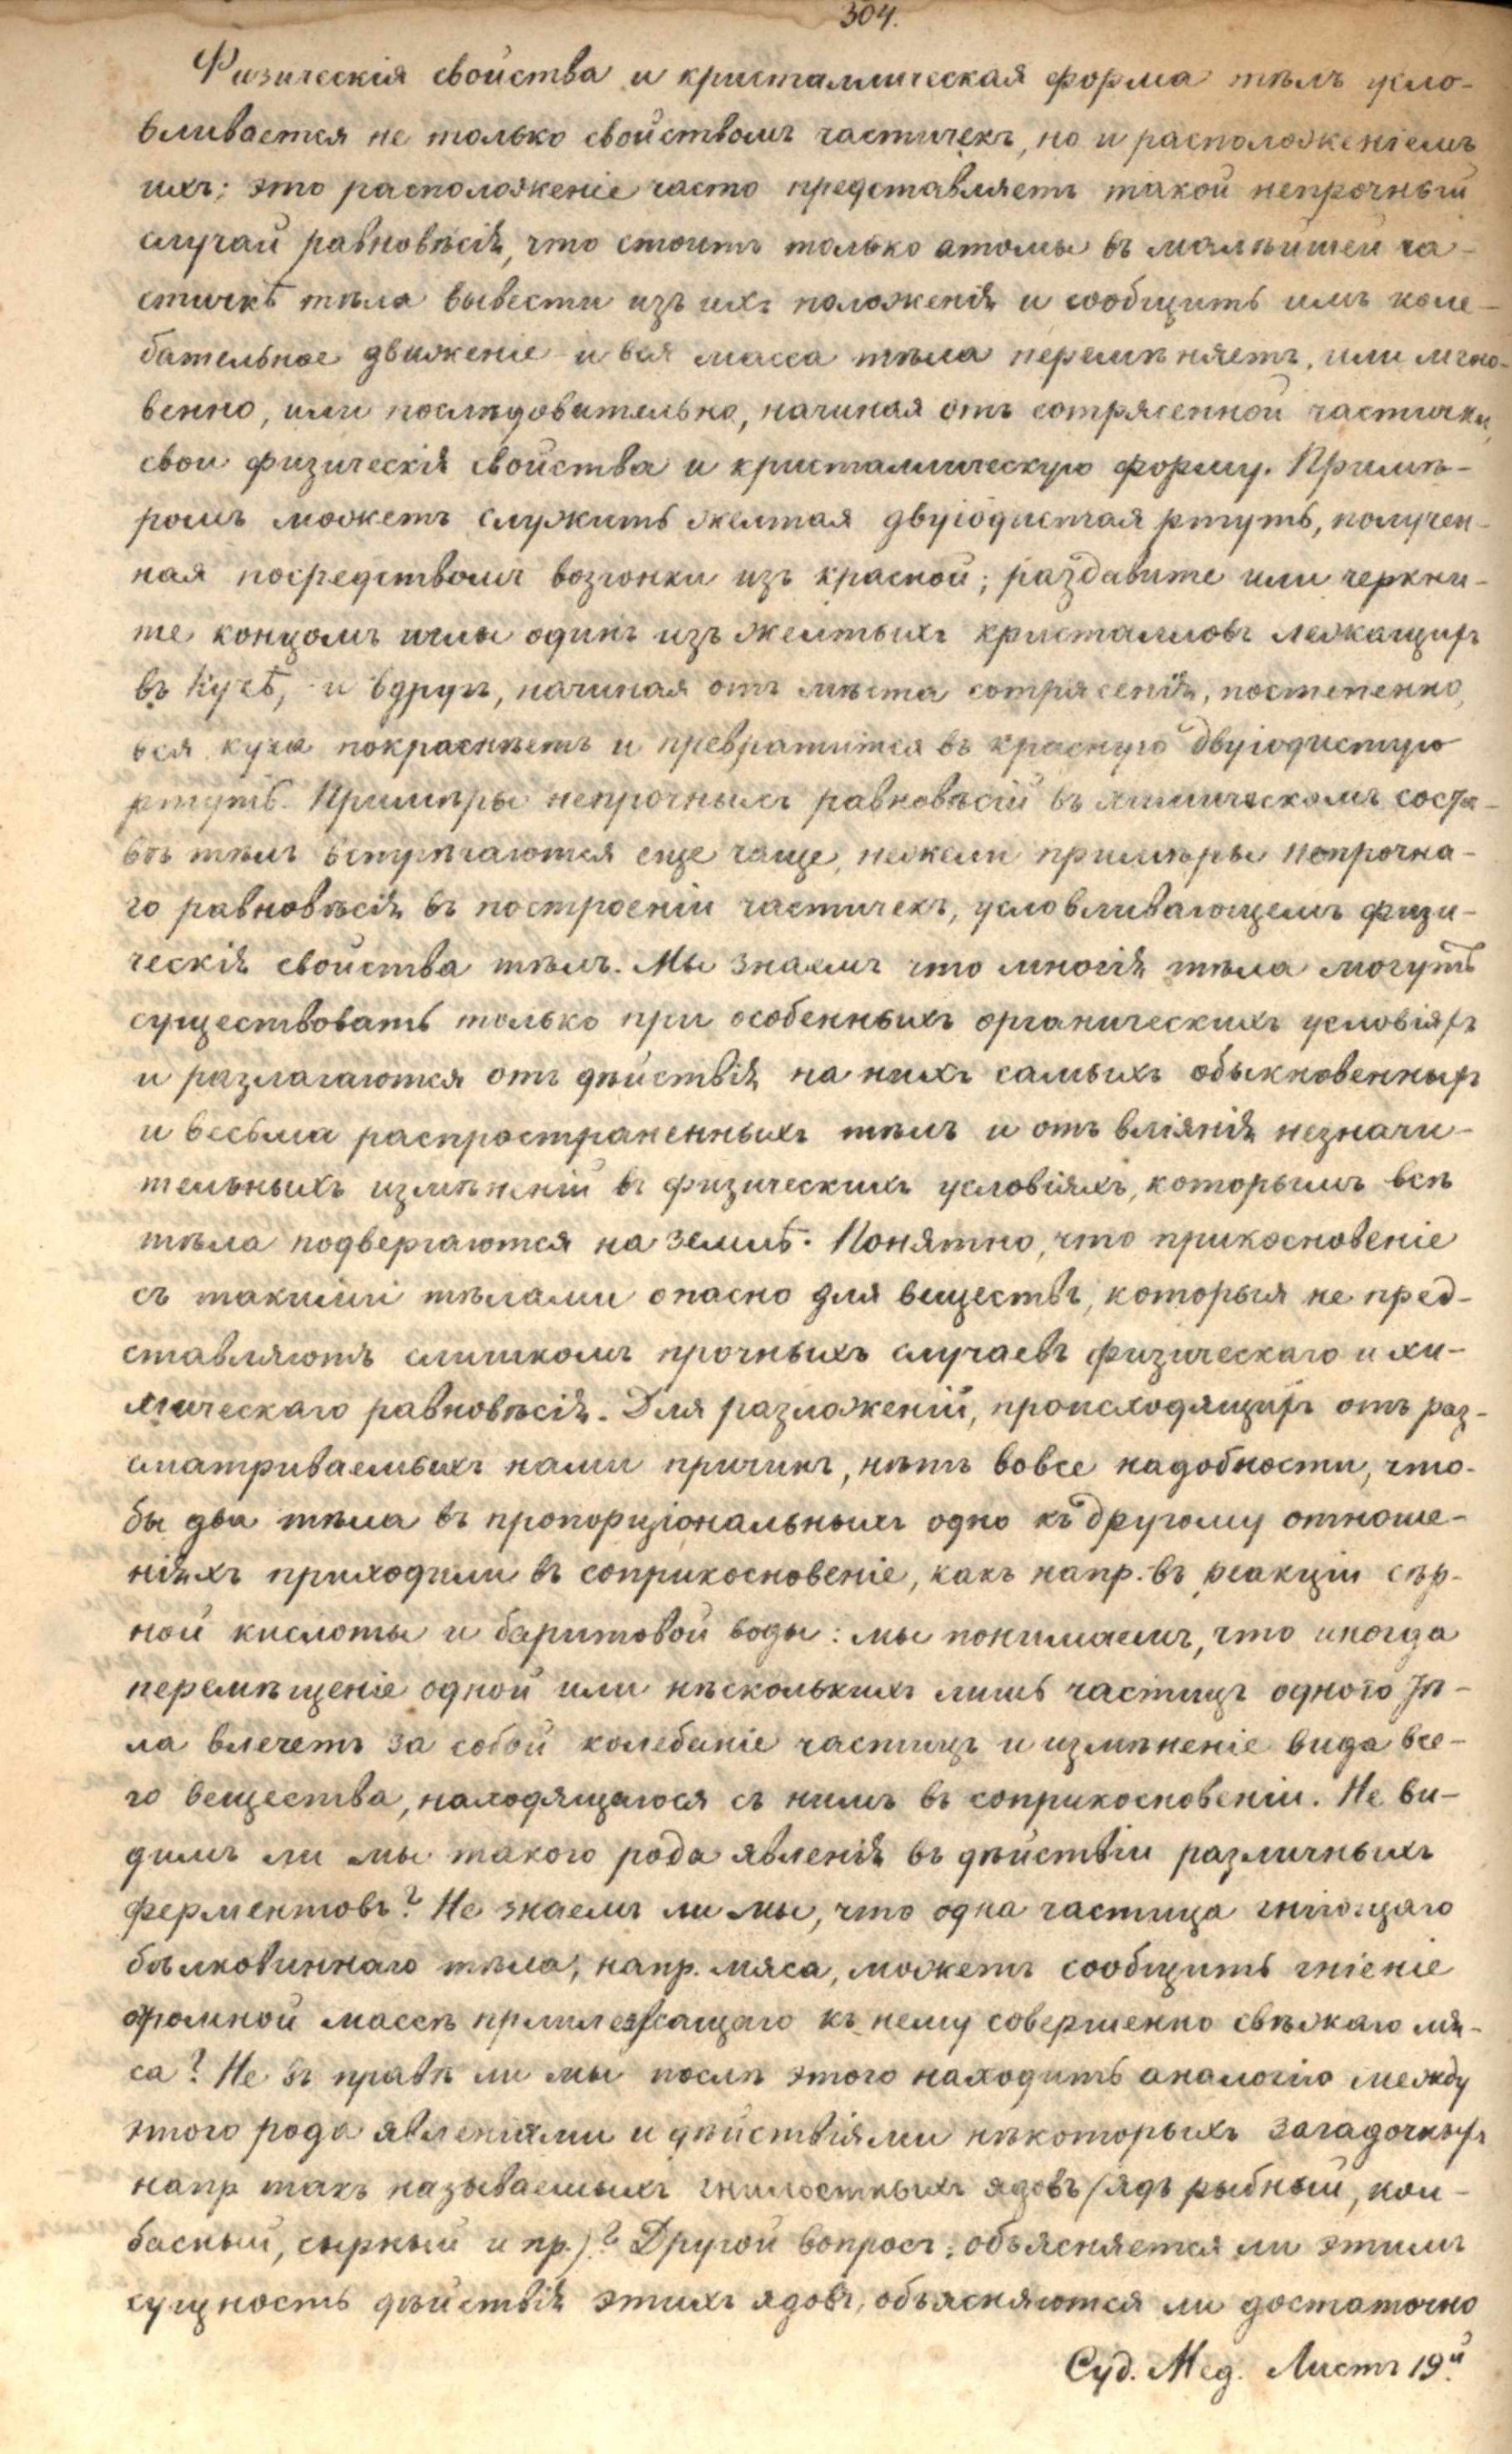 304.
Физическія свойства и кристаллическая форма тѣлъ усло-
вливается не только свойствомъ частичекъ, но и расположеніемъ
ихъ; это расположеніе часто представляетъ такой непрочный
случай равновѣсія, что стоитъ только атомы въ малѣйшей ча-
стичкѣ тѣла вывести изъ ихъ положенія и сообщить имъ коле-
бательное движеніе и вся масса тѣла перемѣняетъ, или мгно-
венно, или послѣдовательно, начиная отъ сотрясенной частички,
свои физическія свойства и кристаллическую форму. Примѣ-
ромъ можетъ служить желтая двуіодистая ртуть, получен-
ная посредствомъ возгонки изъ красной; раздавите или черкни-
те концомъ иглы одинъ изъ желтыхъ кристалловъ лежащихъ
въ кучѣ, и вдругъ, начиная отъ мѣста сотрясенія, постепенно,
вся куча покраснѣетъ и превратится въ красную двуіодистую
ртуть. Примѣры непрочныхъ равновѣсій въ химическомъ соста-
вѣ тѣлъ встрѣчаются еще чаще, нежели примѣры непрочна-
го равновѣсія въ построеніи частичекъ, условливающемъ физи-
ческія свойства тѣлъ. Мы знаемъ что многія тѣла могутъ
существовать только при особенныхъ органическихъ условіяхъ
и разлагаются отъ дѣйствія на нихъ самыхъ обыкновенныхъ
и весьма распространенныхъ тѣлъ и отъ вліянія незначи-
тельныхъ измѣненій въ физическихъ условіяхъ, которымъ всѣ
тѣла подвергаются на землѣ. Понятно, что прикосновеніе
съ такими тѣлами опасно для веществъ, которыя не пред-
ставляютъ слишкомъ прочныхъ случаевъ физическаго и хи-
мическаго равновѣсія. Для разложеній, происходящихъ отъ раз-
сматриваемыхъ нами причинъ, нѣтъ вовсе надобности, что-
бы два тѣла въ пропорціональныхъ одно къ другому отноше-
ніяхъ приходили въ соприкосновеніе, какъ напр. въ реакціи сѣр-
ной кислоты и баритовой воды: мы понимаемъ, что иногда
перемѣщеніе одной или нѣсколькихъ лишь частицъ одного тѣ-
ла влечетъ за собой колебаніе частицъ и измѣненіе вида все-
го вещества, находящагося съ нимъ въ соприкосновеніи. Не ви-
димъ ли мы такого рода явленія въ дѣйствіи различныхъ
ферментовъ? Не знаемъ ли мы, что одна частица гніющаго
бѣлковиннаго тѣла, напр. мяса, можетъ сообщить гніеніе
огромной массѣ прилежащаго къ нему совершенно свѣжаго мя-
са? Не въ правѣ ли мы послѣ этого находить аналогію между
этого рода явленіями и дѣйствіями нѣкоторыхъ загадочныхъ
напр такъ называемыхъ гнилостныхъ ядовъ (ядъ рыбный, кол-
басный, сырный и пр.)? Другой вопросъ: объясняется ли этимъ
сущность дѣйствія этихъ ядовъ, объясняются ли достаточно
Суд. Мед. Листъ 19й.